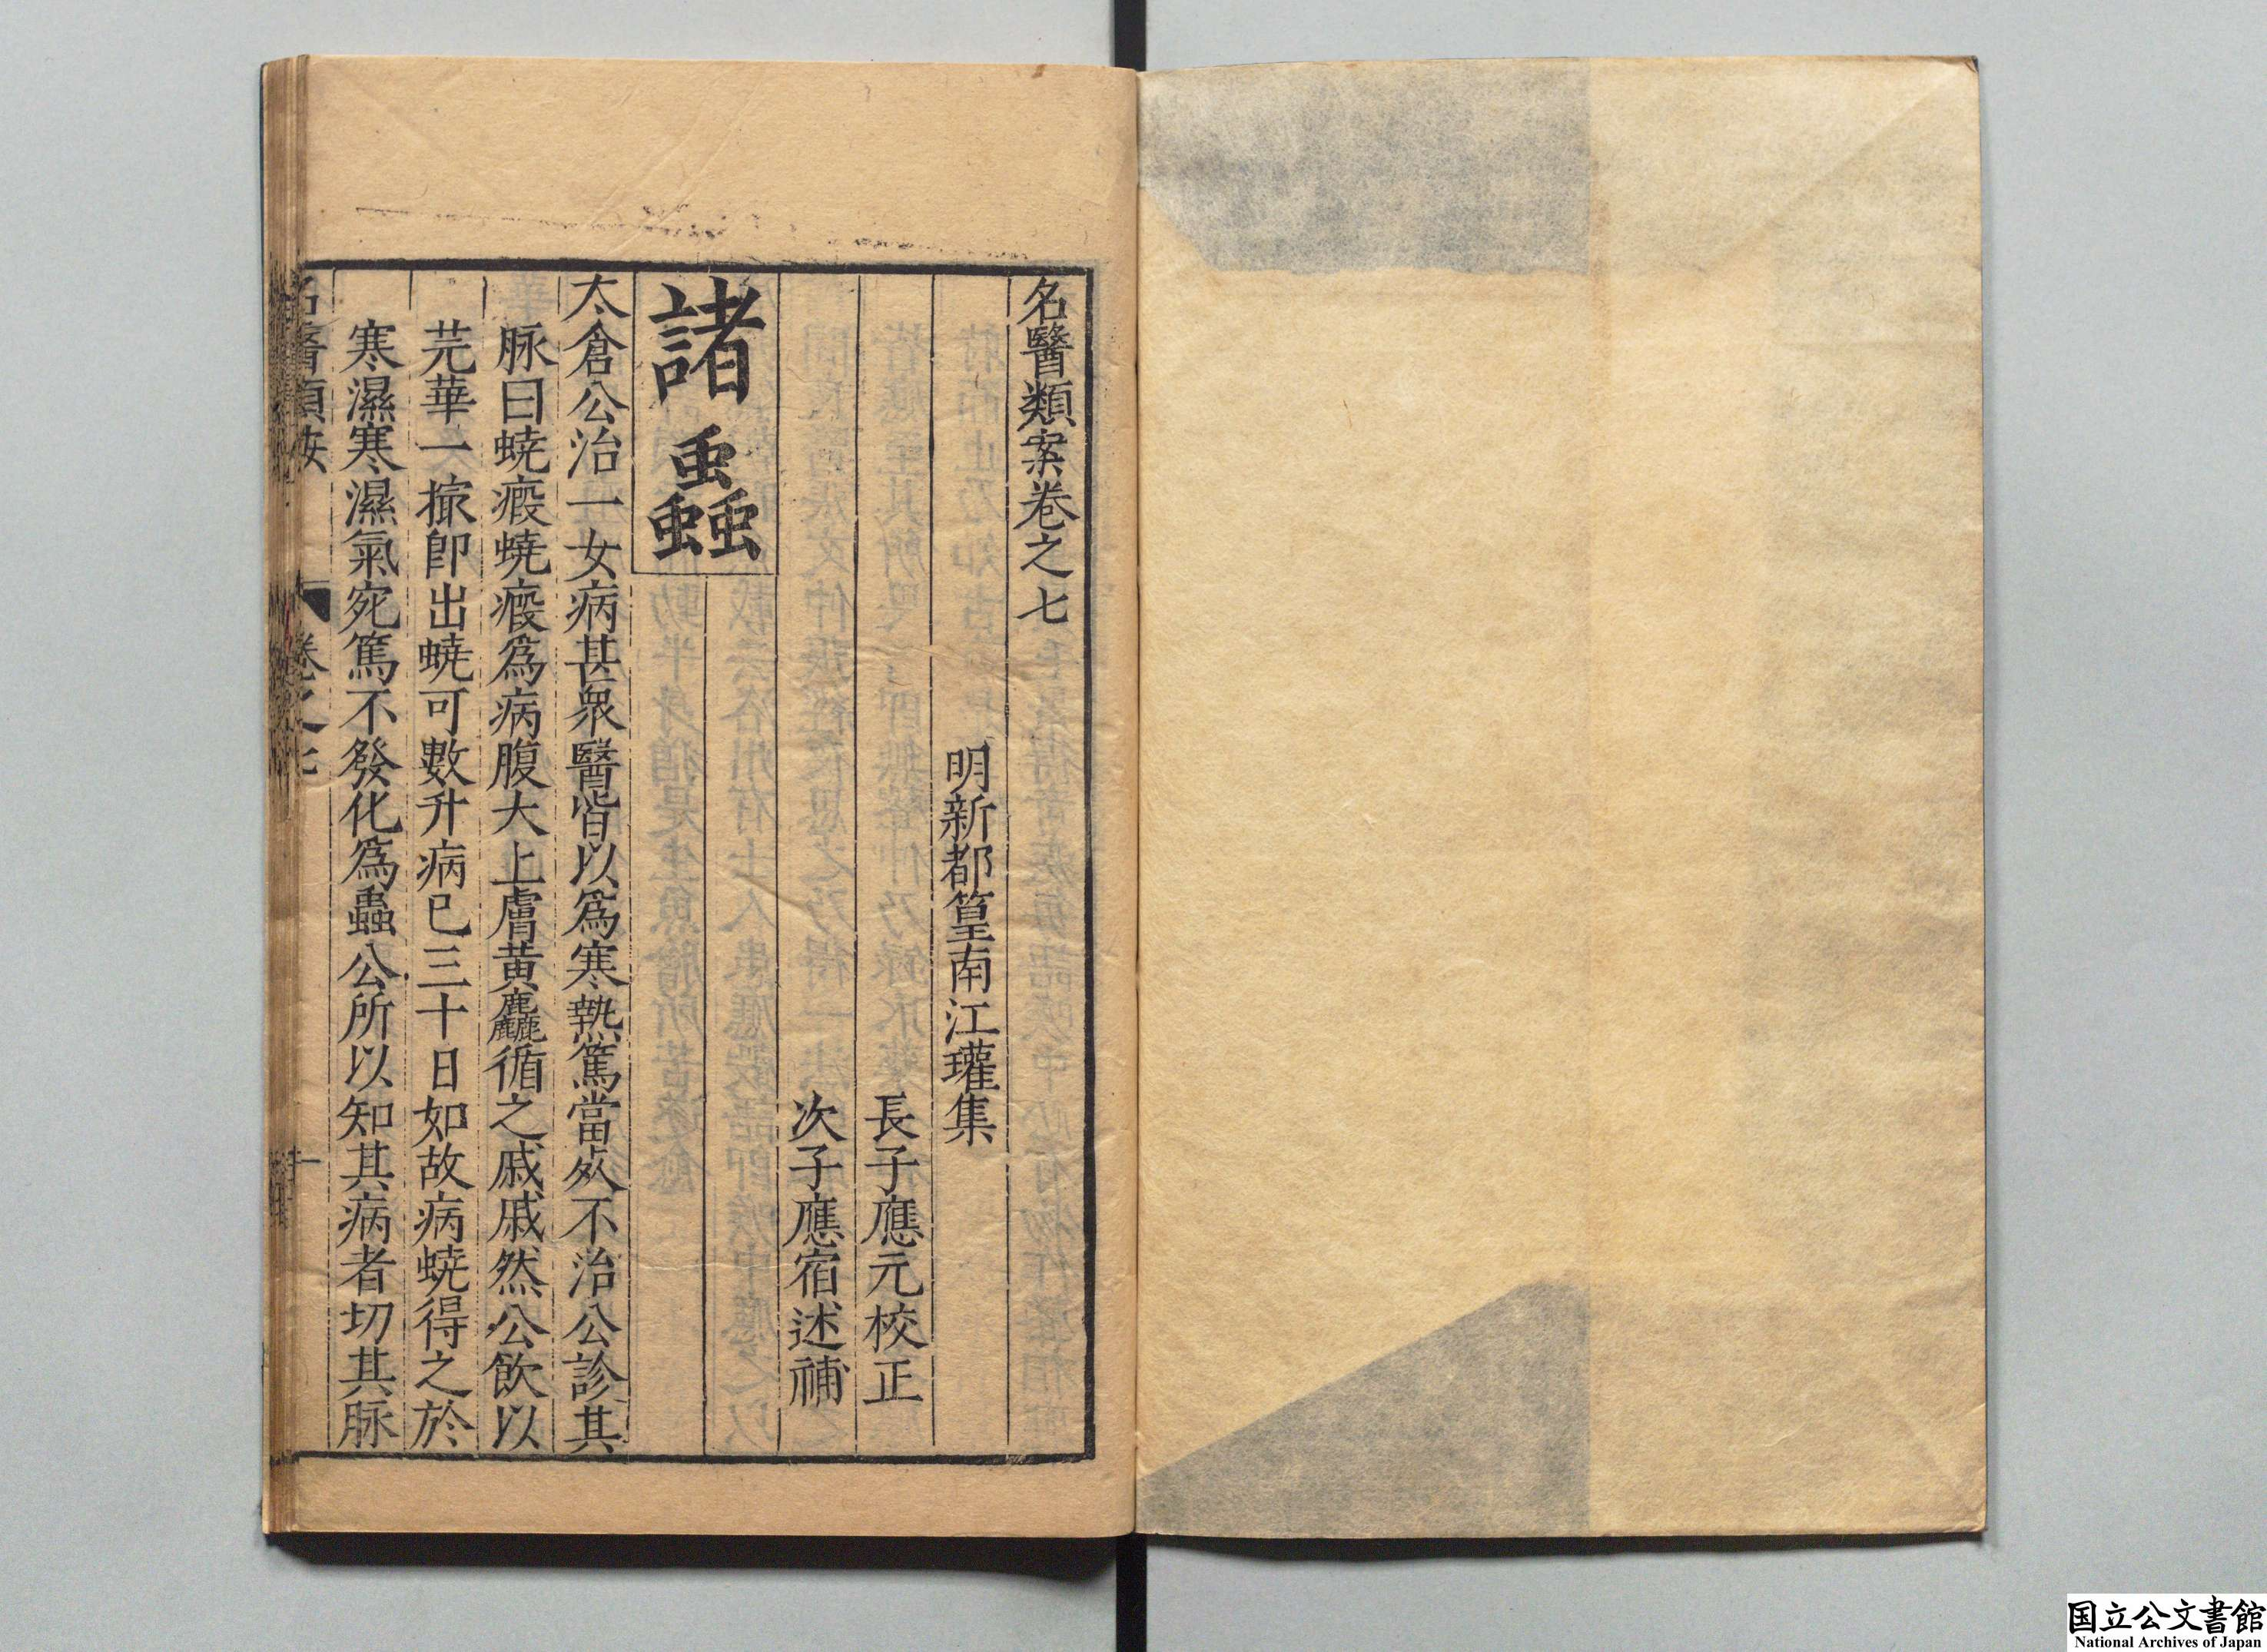 名醫類案卷之七
明新都篁南江瓘集
長子應元校正
次子應宿述補
諸蟲
太倉公治一女病甚衆醫皆以爲寒熱篤當死不治公診其
脉曰蟯瘕蟯瘕爲病腹大上膚黃麤循之戚戚然公飲以
芫華一撮卽出蟯可數升病已三十日如故病蟯得之於
寒濕寒濕氣宛篤不發化爲蟲公所以知其病者切其脉
名醫類案
卷之七
一
国立公文書館
National Archives of Japan